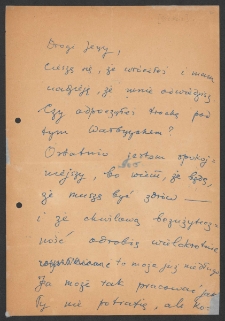 Drogi Jerzy,
Cieszę się, że wróciłeś i mam
nadzieję, że mnie odwiedzisz
Czy odpocząłeś trochę pod
tym Wałbrzychem?
Ostatnio jestem spokoj-
niejszy, bo wiem, że będę,
że muszę być zdrów —
i że chwilową bezużytecz-
ność odrobię wielokrotnie
to może już niedługo
Ja może tak pracować jak
Ty nie potrafię, ale ko-